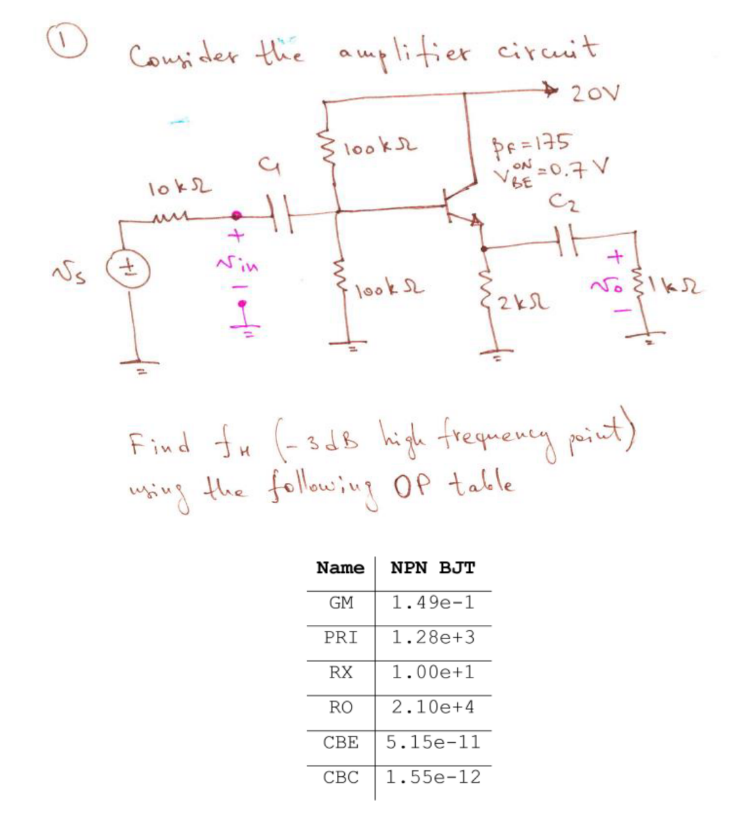 1 Consider the amplifier circuit
20V
100kΩ
βF=175
C1
VBE ON =0.7 V
10kΩ
C2
+
+
vin
vs
±
-
100kΩ
2kΩ
vo
1kΩ
-
Find fH (-3dB high frequency point)
using the following OP table
Name NPN BJT
GM 1.49e-1
PRI 1.28e+3
RX 1.00e+1
RO 2.10e+4
CBE 5.15e-11
CBC 1.55e-12